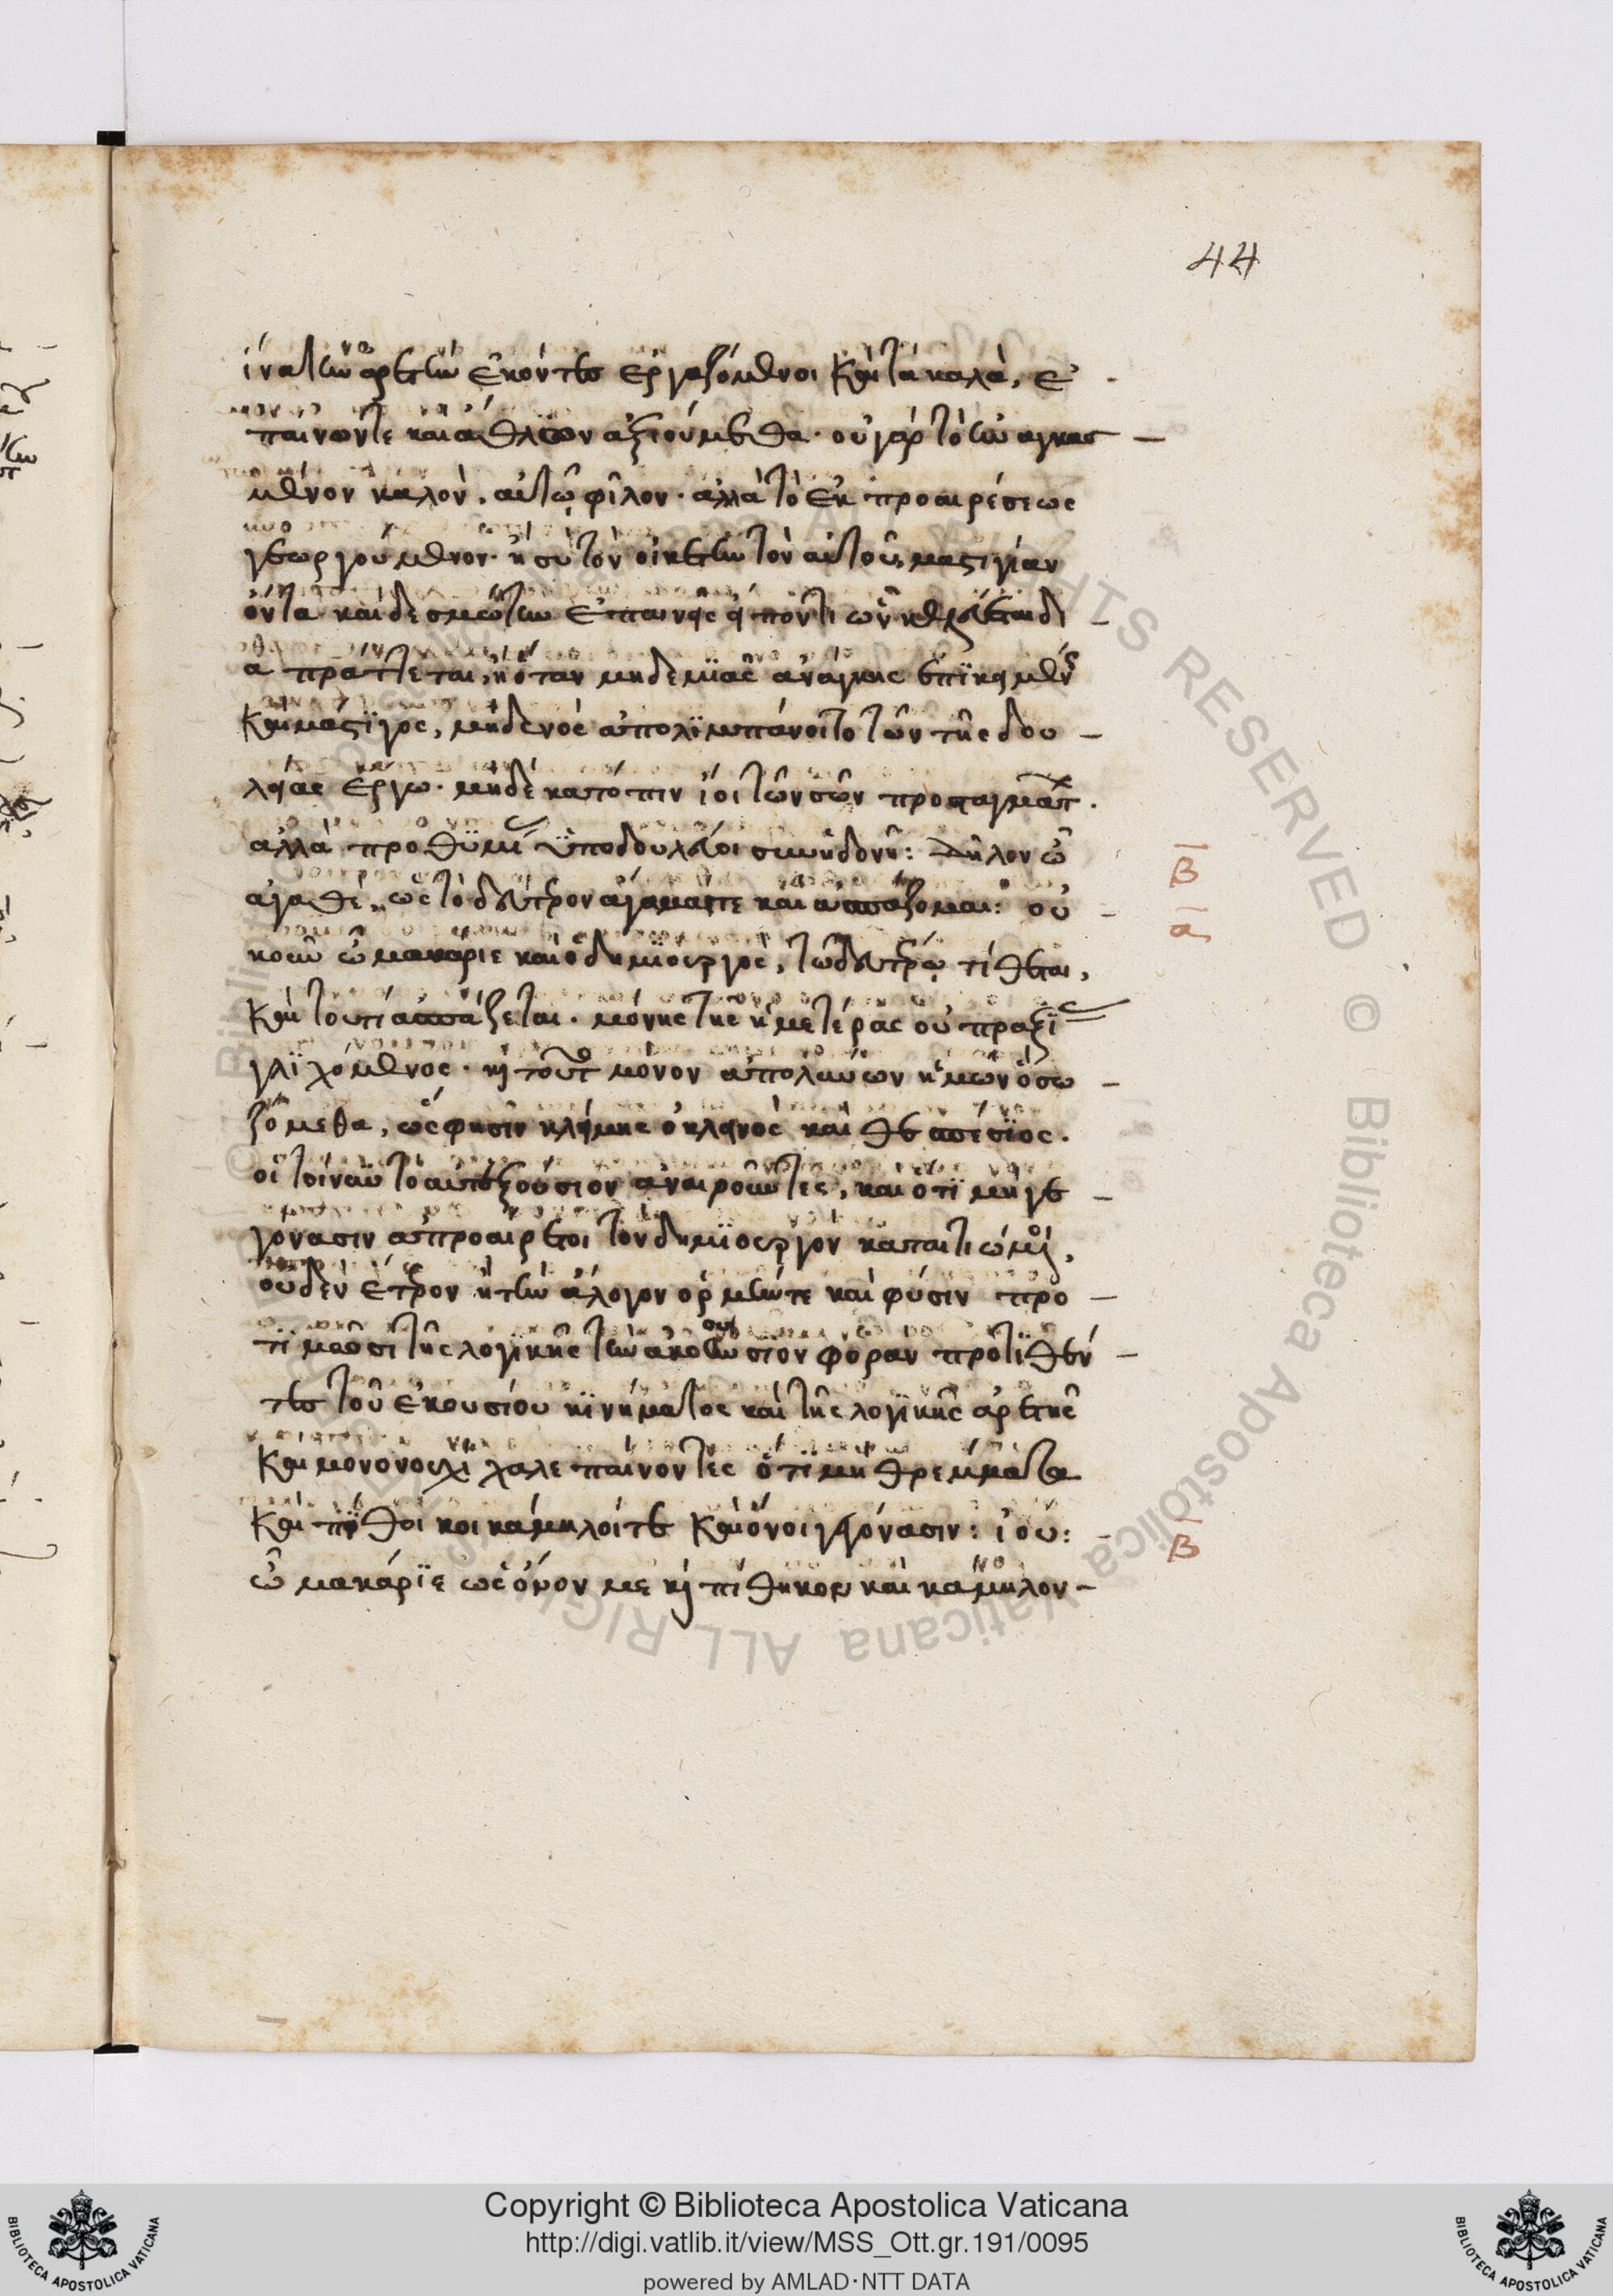 44
ἵνα τὴν ἀρετὴν ἑκόντες ἐργαζόμενοι καὶ τὰ καλὰ, ἐ
παίνων τε καὶ ἄθλων ἀξιούμεθα · οὐ γὰρ τὸ ἠναγκασ –
μένον καλὸν, αὐτῷ φίλον · ἀλλὰ τὸ ἐκ προαιρέσεως
γεωργούμενον · ἢ σὺ τὸν οἰκέτην τὸν αὐτοῦ, μαστιγίαν
ὄντα καὶ δεσμώτην ἐπαινεῖς
πράττεται, ἢ ὅταν μηδεμϊᾶς ἀνάγκης ἐπϊκειμένης
καὶ μάστϊγος, μηδενὸς ἀπολϊμπάνοιτο τῶν τῆς δου –
λείας ἔργων · μηδὲ κατόπιν ἴοι τῶν σῶν προσταγμάτων .
ἀλλὰ προθϋμία ὑποδουλεύοι σὺν ἡδονῇ : Δῆλον ὦ
Β
ἀγαθὲ, ὡς τὸ δεύτερον ἄγαμαί τε καὶ ἀσπάζομαι : οὐ –
α
κοῦν ὦ μακάριε καὶ ὁ δημϊουργὸς, τῷ δευτέρῳ τίθεται,
καὶ τοῦτο ἀσπάζεται · μόνης τῆς ἡμετέρας εὐπραξίας
γλϊχόμενος · καὶ τοῦτο μόνον ἀπολαύων ἡμῶν ὃ σω –
ζόμεθα, ὥς φησιν κλήμης ὁ κλεινὸς καὶ θεσπέσϊος .
οἱ τοίνυν τὸ αὐτεξούσϊον ἀναιροῦντες, καὶ ὅτϊ μὴ γε –
γόνασιν ἀπροαίρετοι τὸν δημϊουργὸν καταιτιώμενοι,
οὐδὲν ἕτερον ἢ τὴν ἄλογον ὁρμήν τε καὶ φύσιν προ –
τϊμῶσι τῆς λογϊκῆς τὴν ἀκούσιον φορὰν προτϊθέν –
τες τοῦ ἑκουσίου κϊνήματος καὶ τῆς λογϊκῆς ἀρετῆς
καὶ μονονουχὶ χαλεπαίνοντες ὅτϊ μὴ θρέμματα
καὶ πίθηκοι κάμηλοί τε καὶ ὄνοι γεγόνασιν : ἰού : –
Β
ὦ μακάρϊε ὡς ὄνον με καὶ πίθηκον καὶ κάμηλον –
Copyright © Biblioteca Apostolica Vaticana
http://digi.vatlib.it/view/MSS_Ott.gr.191/0095
powered by AMLAD·NTT DATA
BIBLIOTECA APOSTOLICA VATICANA
BIBLIOTECA APOSTOLICA VATICANA
© Biblioteca Apostolica Vaticana ALL RIGHTS RESERVED